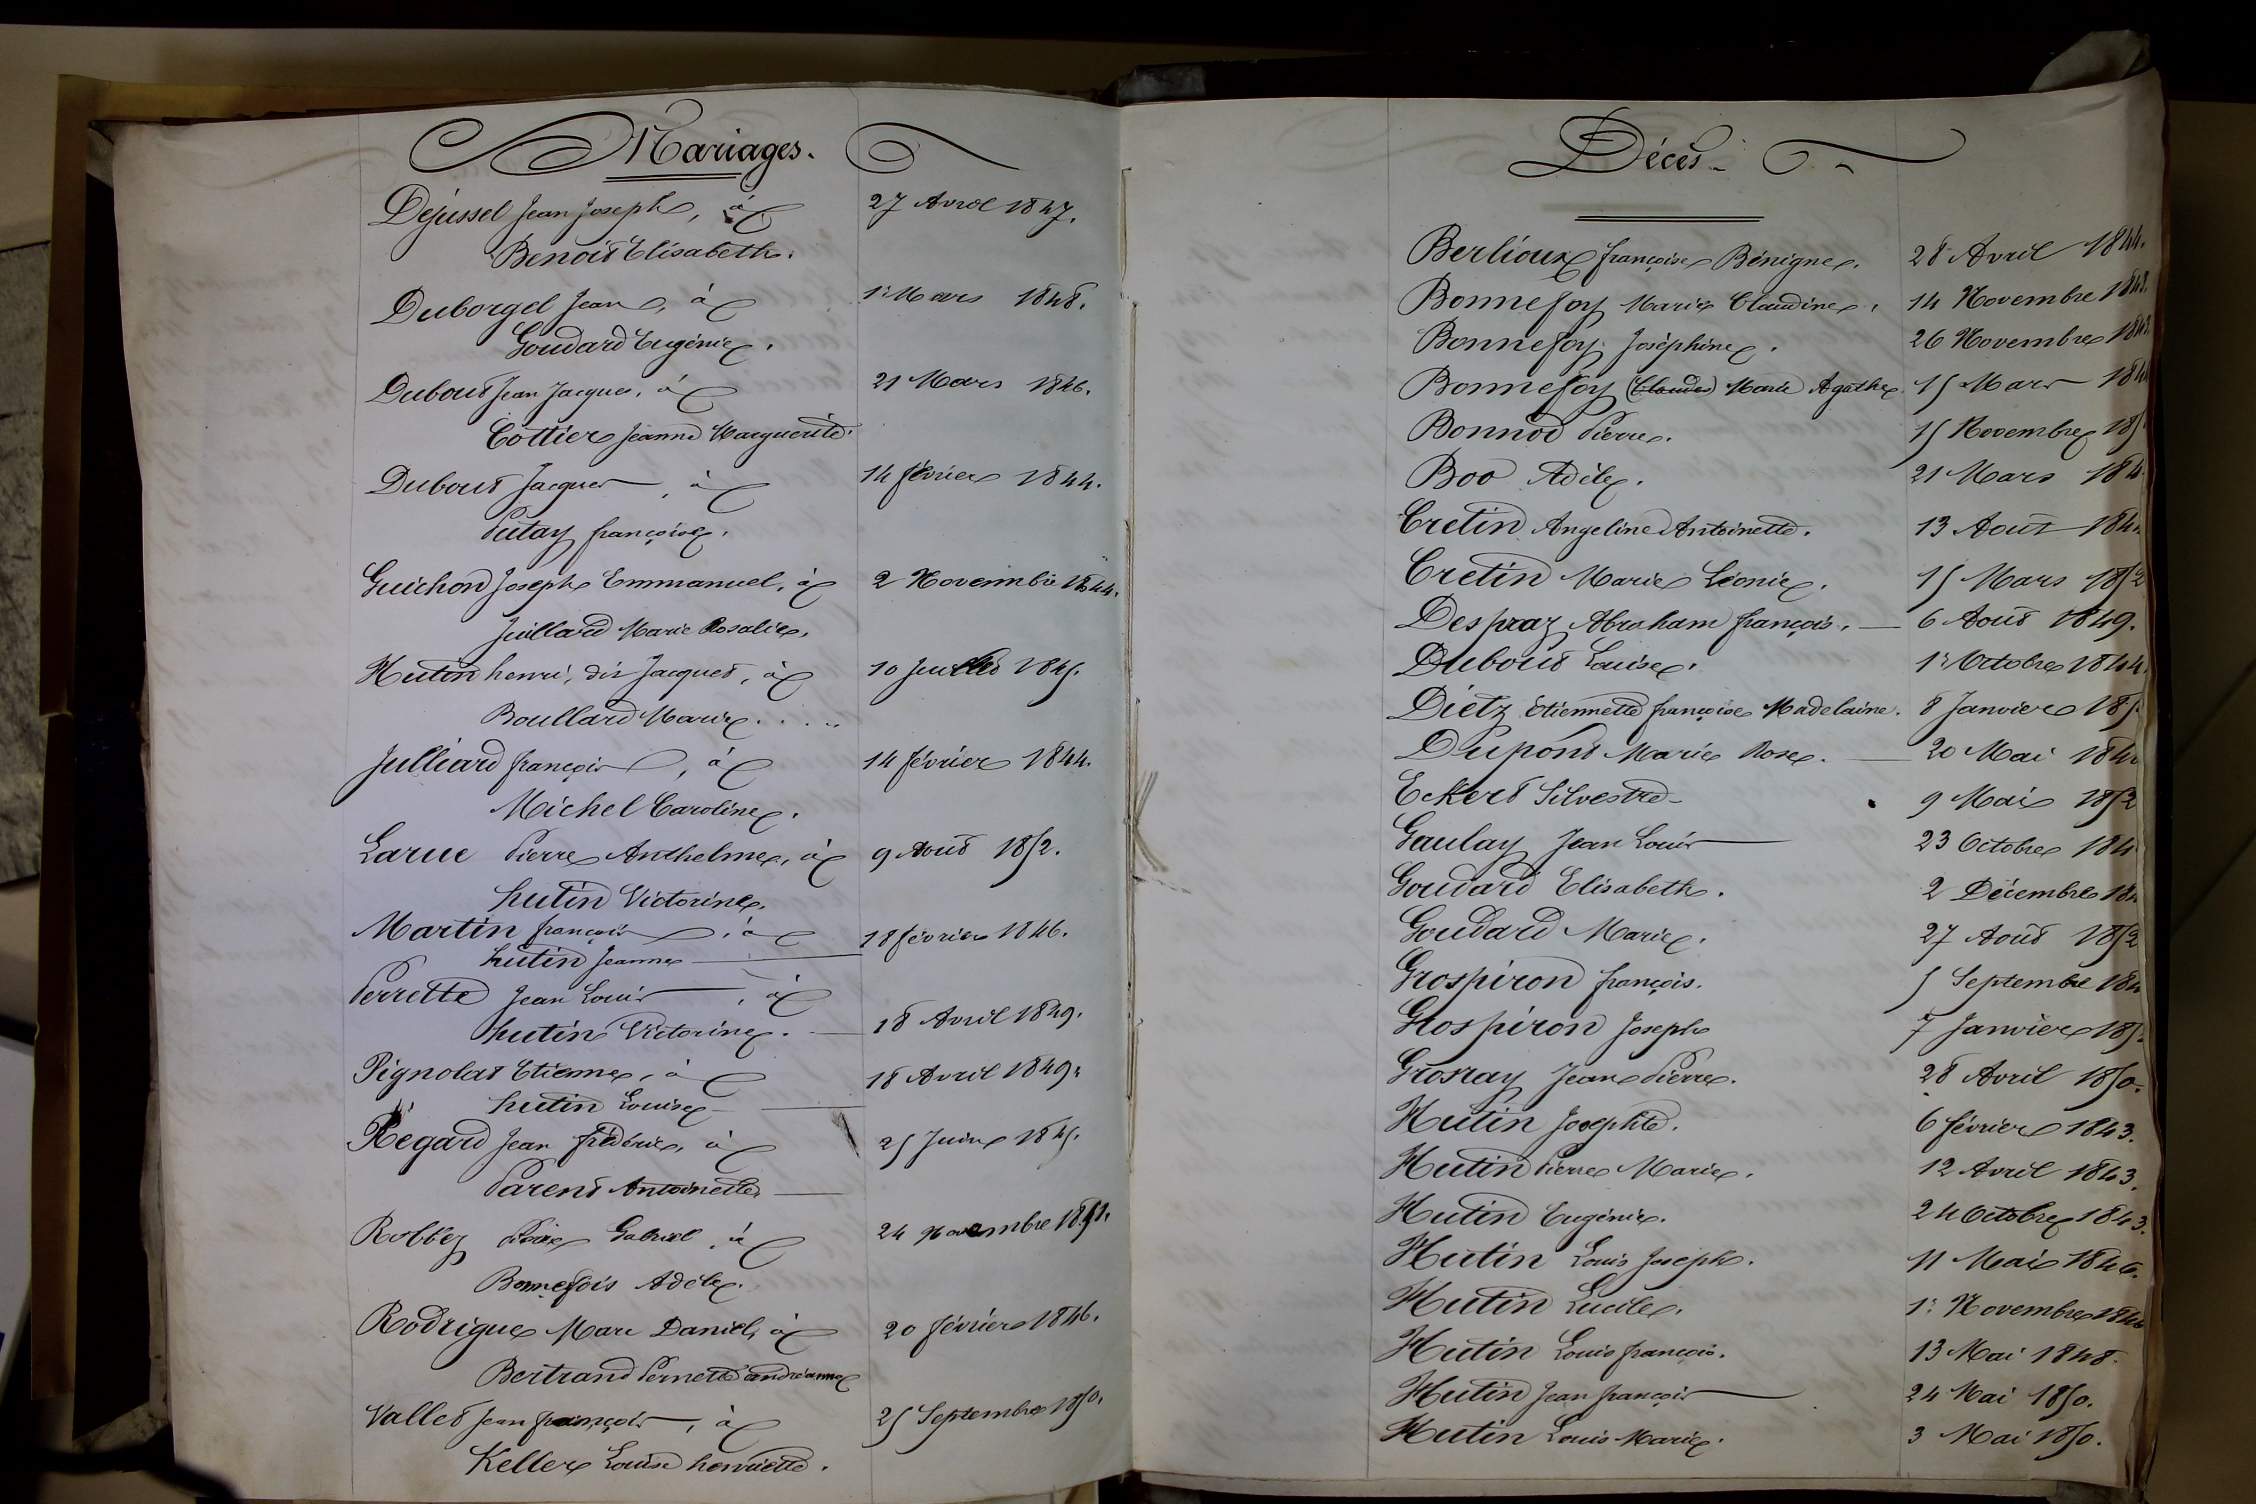 Mariages.
Dejussel Jean Joseph, à 27 Avril 1847.
Benoit Elisabeth.
Duborgel Jean, à 1er Mars 1848.
Goudard Eugénie.
Dubout Jean Jacques, à 21 Mars 1846.
Cottier Jeanne Marguerite.
Dubout Jacques, à 14 février 1844.
Putay françoise.
Guichon Joseph Emmanuel, à 2 Novembre 1844.
Juillard Marie Rosalie.
Hutin henri, dit Jacques, à 10 Juillet 1845.
Boullard Marie.
Julliard françois, à 14 février 1844.
Michel Caroline.
Larue Pierre Anthelme, à 9 Août 1852.
hutin Victorine.
Martin françois, à 18 février 1846.
hutin Jeanne
Perrette Jean Louis, à
hutin Victorine. 18 Avril 1849.
Pignolat Etienne, à 18 Avril 1849.
hutin Louise
Régard Jean frédéric, à 25 Juin 1845.
Parent Antoinette
Robbez Gabriel, à 24 Novembre 1851.
Bonnefois Adèle.
Rodrigue Marc Daniel, à 20 février 1846.
Bertrand Pernette andréanne
Vallet Jean françois, à 25 Septembre 1850.
Keller Louise henriette.
Décès
Berlioux françoise Bénigne. 28 Avril 1844.
Bonnefoy Marie Claudine. 14 Novembre 1843.
Bonnefoy Joséphine. 26 Novembre
Bonnefoy (Claude) Marie Agathe 15 Mars
Bonnod Pierre. 15 Novembre
Boo Adèle. 21 Mars
Cretin Angeline Antoinette. 13 Août
Cretin Marie Léonie. 15 Mars 1852
Despraz Abraham françois. 6 Août 1849.
Dubout Louise. 1er Octobre 1844.
Diétz Etiennette françoise Madelaine. 8 Janvier
Dupont Marie Rose. 20 Mai
Eckert Silvestre 9 Mai 1852
Gaulay Jean Louis 23 Octobre
Goudard Elisabeth. 2 Décembre
Goudard Marie. 27 Août 1852
Grospiron françois. 5 Septembre
Grospiron Joseph 7 Janvier
Grosray Jean Pierre. 28 Avril 1850.
Hutin Josephte. 6 février 1843.
Hutin Pierre Marie. 12 Avril 1843.
Hutin Eugénie. 24 Octobre 1843.
Hutin Louis Joseph. 11 Mai 1846.
Hutin Lucile. 1er Novembre
Hutin Louis françois. 13 Mai 1848.
Hutin Jean françois 24 Mai 1850.
Hutin Louis Marie. 3 Mai 1850.